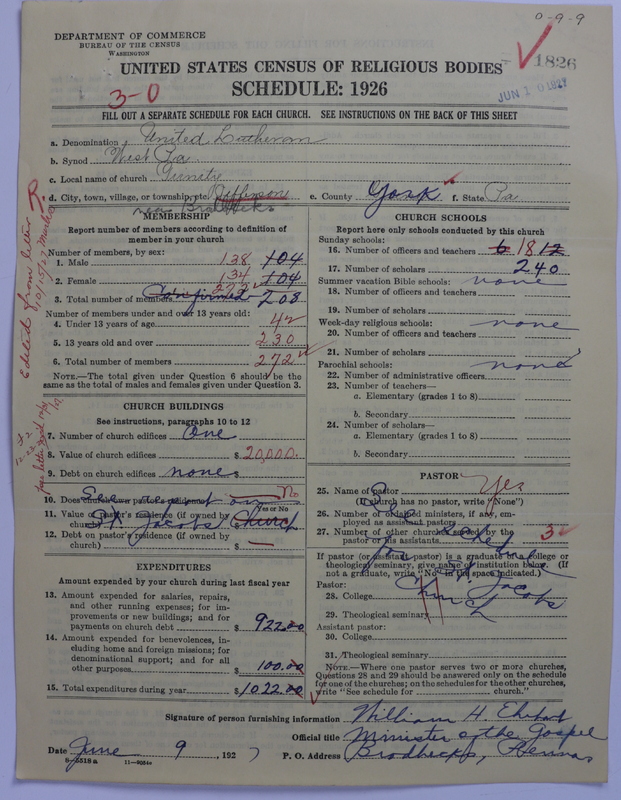 0-9-9
DEPARTMENT OF COMMERCE
BUREAU OF THE CENSUS
WASHINGTON
1826
JUN 10 1927
UNITED STATES CENSUS OF RELIGIOUS BODIES
SCHEDULE: 1926
3-0
FILL OUT A SEPARATE SCHEDULE FOR EACH CHURCH. SEE INSTRUCTIONS ON THE BACK OF THIS SHEET
a. Denomination United Lutheran
b. Synod West Pa
c. Local name of church Trinity
d. City, town, village, or township, etc. Jefferson e. County York f. State Pa
near Brodbecks
MEMBERSHIP
Report number of members according to definition of
member in your church
Number of members, by sex:
1. Male 138 104
2. Female 134 104
3. Total number of members Confirmed 272 208
Number of members under and over 13 years old:
4. Under 13 years of age 42
5. 13 years old and over 230
6. Total number of members 272
NOTE.—The total given under Question 6 should be the
same as the total of males and females given under Question 3.
CHURCH BUILDINGS
See instructions, paragraphs 10 to 12
7. Number of church edifices One
8. Value of church edifices $ 20,000.
9. Debt on church edifices none $
10. Does church own pastor's residence? No
Yes or No
11. Value of pastor's residence (if owned by
church) St. Jacobs Church
12. Debt on pastor's residence (if owned by
church) $ —
EXPENDITURES
Amount expended by your church during last fiscal year
13. Amount expended for salaries, repairs,
and other running expenses; for im-
provements or new buildings; and for
payments on church debt $ 922.00
14. Amount expended for benevolences, in-
cluding home and foreign missions; for
denominational support; and for all
other purposes $ 100.00
15. Total expenditures during year $ 1022.00
CHURCH SCHOOLS
Report here only schools conducted by this church
Sunday schools:
16. Number of officers and teachers 6 18 12
17. Number of scholars 240
Summer vacation Bible schools: none
18. Number of officers and teachers
19. Number of scholars
Week-day religious schools: none
20. Number of officers and teachers
21. Number of scholars
Parochial schools: none
22. Number of administrative officers
23. Number of teachers—
a. Elementary (grades 1 to 8)
b. Secondary
24. Number of scholars—
a. Elementary (grades 1 to 8)
b. Secondary
PASTOR
25. Name of pastor Yes
(If church has no pastor, write "None")
26. Number of ordained ministers, if any, em-
ployed as assistant pastors
27. Number of other churches served by the
pastor or his assistants 3
If pastor (or assistant pastor) is a graduate of college or
theological seminary, give name of institution below. (If
not a graduate, write "No" in the space indicated.)
Pastor:
28. College
29. Theological seminary
Assistant pastor:
30. College
31. Theological seminary
NOTE.—Where one pastor serves two or more churches,
Questions 28 and 29 should be answered only on the schedule
for one of the churches; on the schedules for the other churches,
write "See schedule for church."
Signature of person furnishing information William H. Ehrhart
Official title Minister of the Gospel
Date June 9, 1927 P. O. Address Brodbecks, Penna
8-5518 a 11-9054